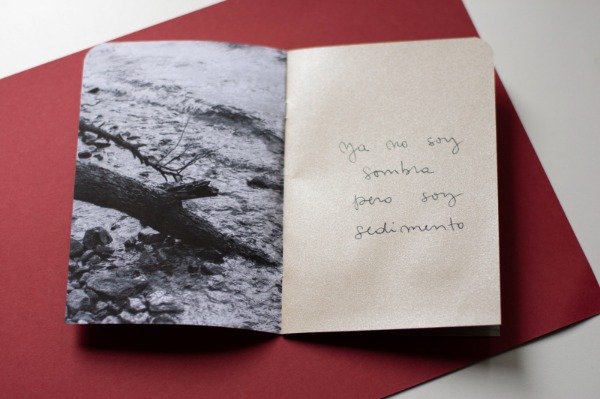 Ya no soy
sombra
pero soy
sedimento